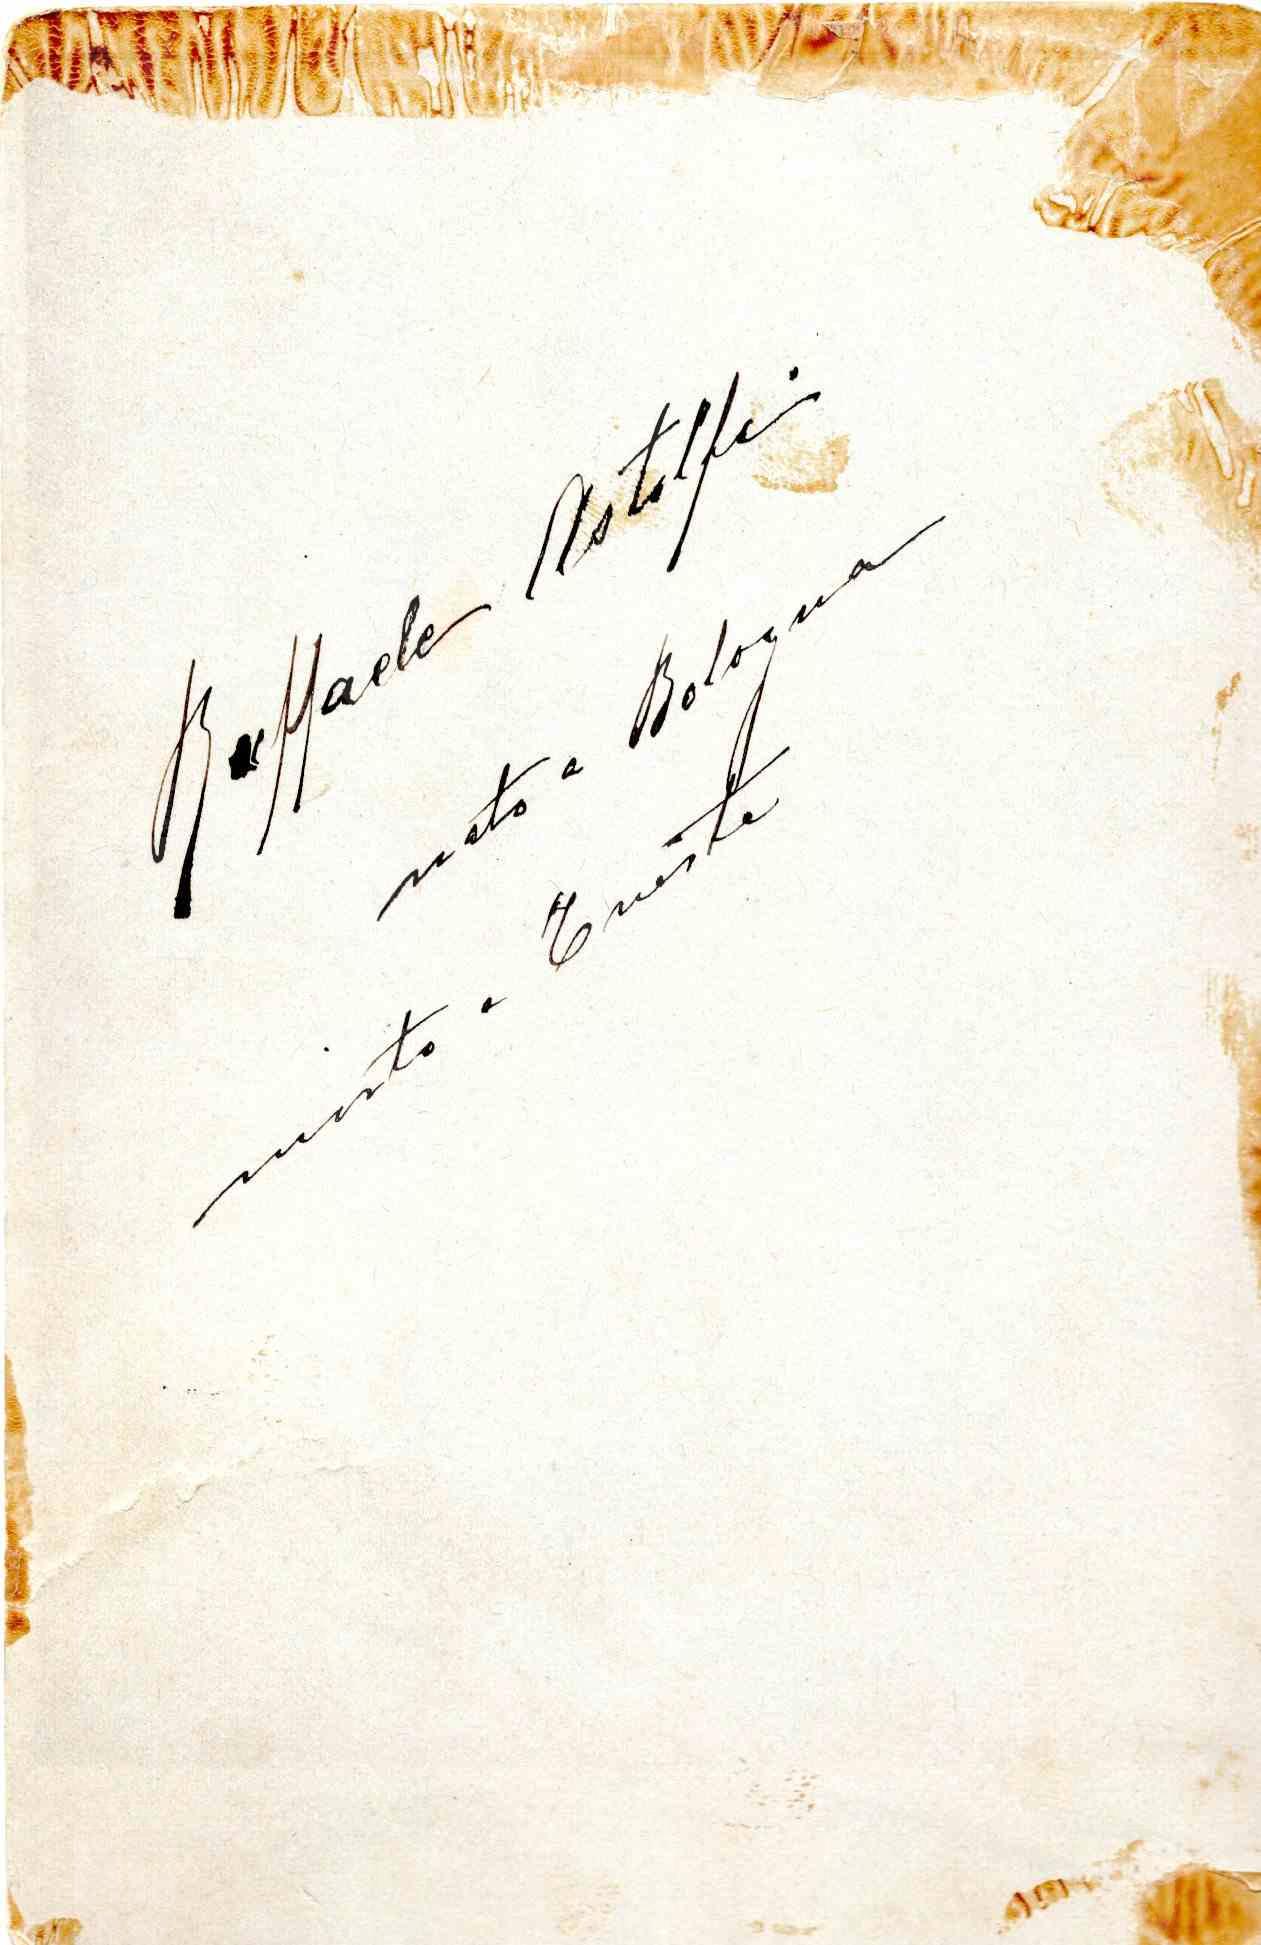 Raffaele Astolfi
nato a Bologna
morto a Trieste